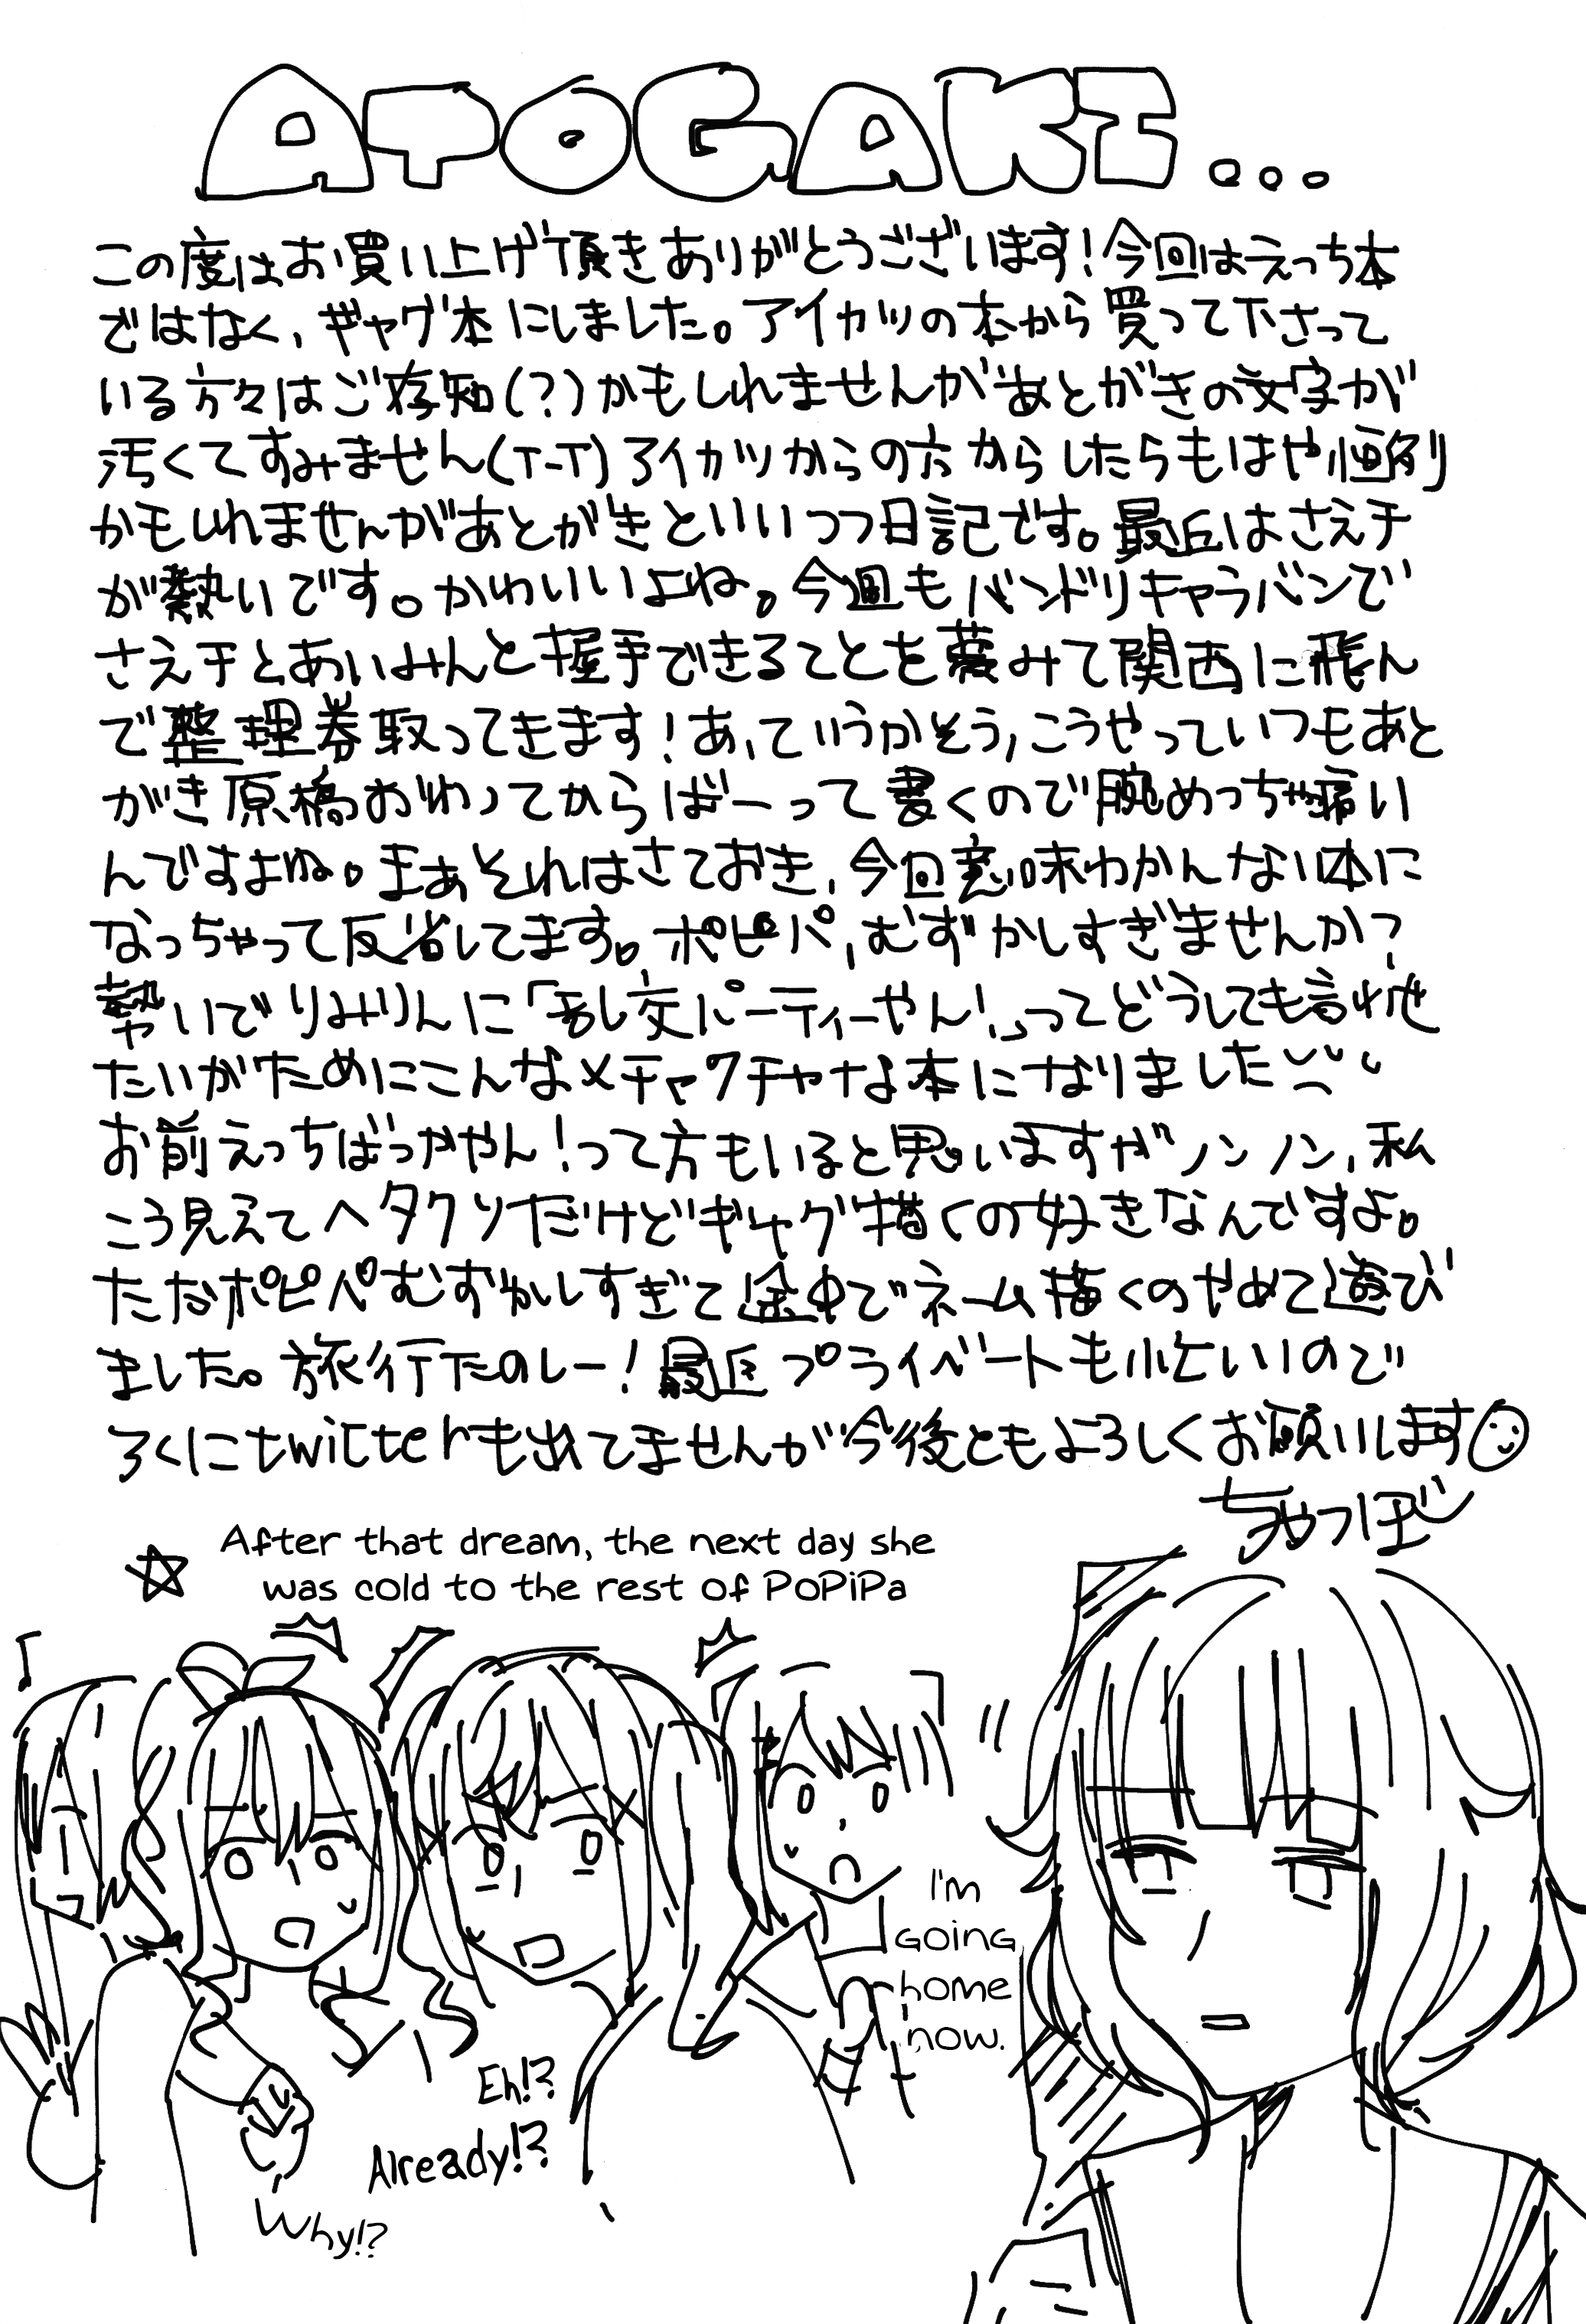 ATOGAKI...
この度はお買い上げ頂きありがとうございます!今回はえっち本
ではなく、ギャグ本にしました。アイカツの本から買って下さって
いる方々はご存知(?)かもしれませんがあとがきの文字が
汚くてすみません(T-T)アイカツからの方からしたらもはや恒例
かもしれませんがあとがきといいつつ日記です。最近はさえチ
が熱いです。かわいいよね。今週もバンドリキャラバンで
さえチとあいみんと握手できることを夢みて関西に飛ん
で整理券取ってきます!あ、ていうかそう、こうやっていつもあと
がき原稿おわってからばーって書くので腕めっちゃ痛い
んですよね。まぁそれはさておき、今回意味わかんない本に
なっちゃって反省してます。ポピパ、むずかしすぎませんか?
勢いでりみりんに「乱交パーティーやん!」ってどうしても言わせ
たいがためにこんなメチャクチャな本になりました
お前えっちばっかやん!って方もいると思いますがノンノン、私
こう見えてヘタクソだけどギャグ描くの好きなんですよ。
ただポピパむずかしすぎて途中でネーム描くのやめて遊び
ました。旅行たのしー!最近プライベートも忙しいので
ろくにtwitterも出てませんが今後ともよろしくお願いします
ちゃつぼ
☆ After that dream, the next day she
was cold to the rest of PoPiPa
I'm
going
home
now.
Eh!?
Already!?
Why!?